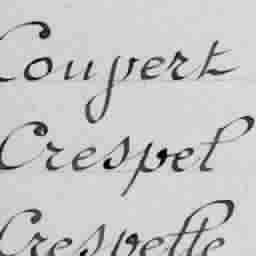 Coupert
Crespel
Crespelle